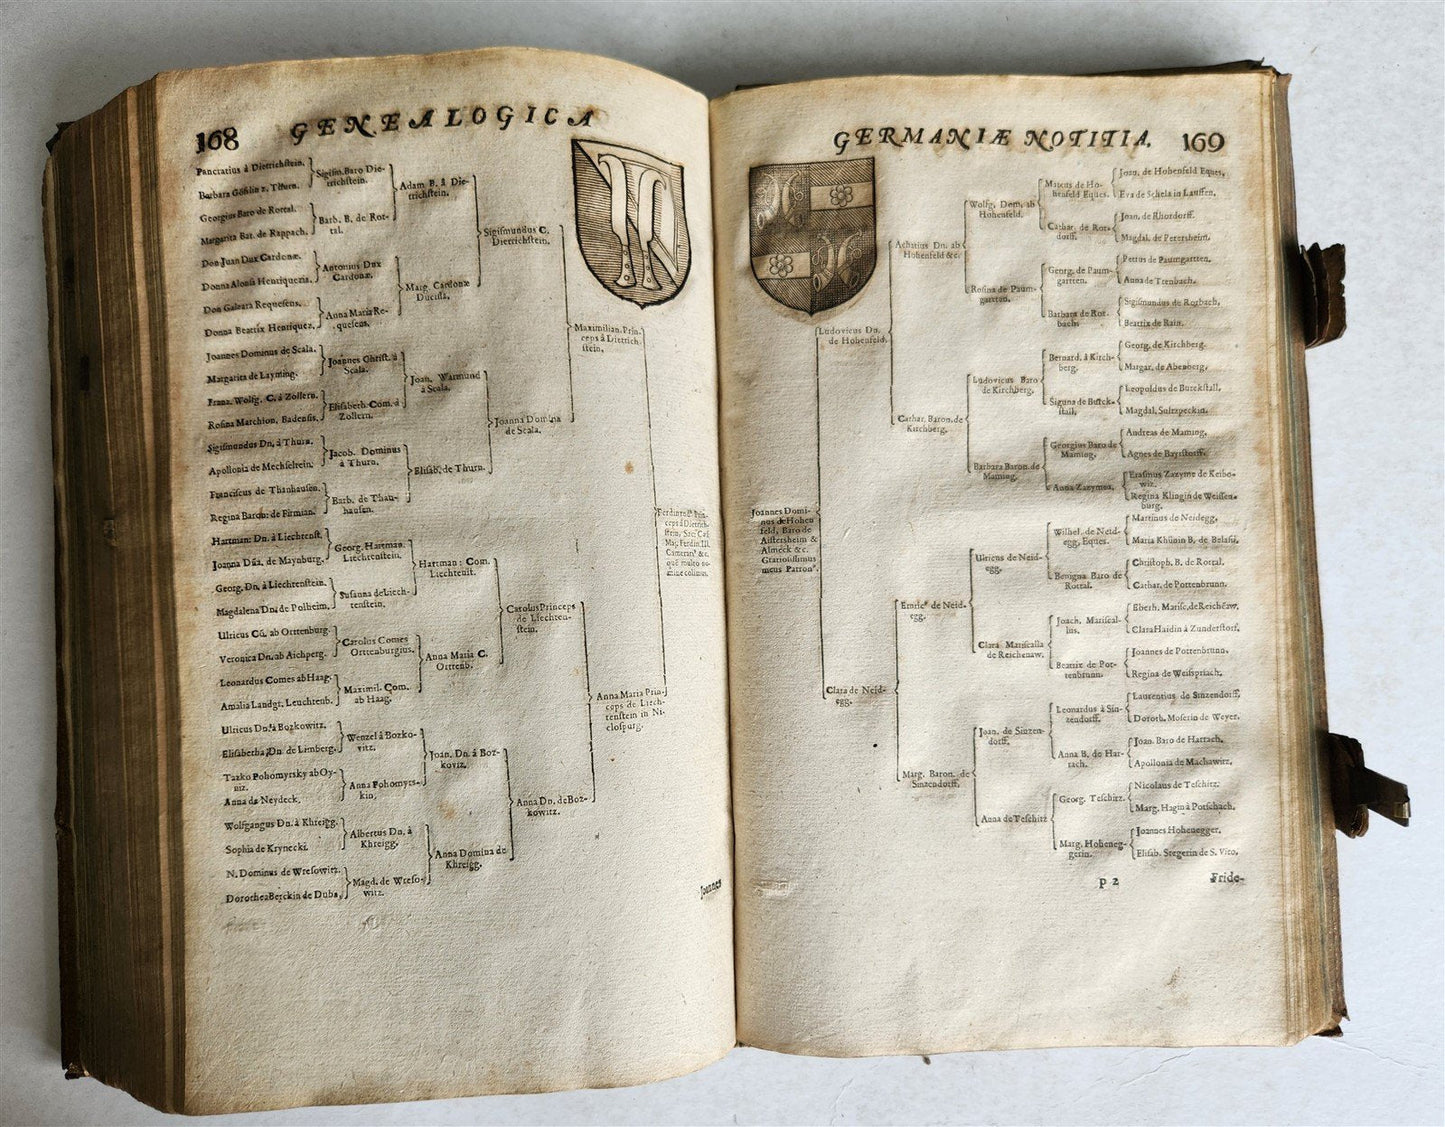 168 GENEALOGICA
Pancratius à Dietrichſtein.
Barbara Göſslin z. Thurn.
Georgius Baro de Rottal.
Margarita Bar. de Rappach.
Don Juan Dux Cardonæ.
Donna Aloniſa Henriqueria.
Don Galzara Requeſens.
Donna Beatrix Henriquez.
Joannes Dominus de Scala.
Margarita de Layming.
Franz. Wolfg. C. à Zollern.
Roſina Marchion. Badenſis.
Sigiſmundus Dn. à Thurn.
Apollonia de Mechſelrein.
Franciſcus de Thanhauſen.
Regina Baron: de Firmian.
Hartman: Dn. à Liechtenſt.
Joanna Dña. de Maynburg.
Georg. Dn. à Liechtenſtein.
Magdalena Dn. de Polheim.
Ulricus Cō. ab Orttenburg.
Veronica Dn. ab Aichperg.
Leonardus Comes ab Haag.
Amalia Landgr. Leuchtenb.
Ulricus Dn. à Bozkowitz.
Eliſabetha Dn. de Limberg.
Tazko Pohomyrsky ab Oy-
niz.
Anna de Neydeck.
Wolfgangus Dn. à Khreigg.
Sophia de Krynecki.
N. Dominus de Wreſowitz.
Dorothea Berckin de Duba.
Sigiſm. Baro Die-
trichſtein.
Barb. B. de Rot-
tal.
Antonius Dux
Cardonæ.
Anna Maria Re-
queſens.
Joannes Chriſt. à
Scala.
Eliſabeth. Com. à
Zollern.
Jacob. Dominus
à Thurn.
Barb. de Than-
hauſen.
Georg. Hartman.
Liechtenſtein.
Suſanna de Liech-
tenſtein.
Carolus Comes
Orttenburgius.
Maximil. Com.
ab Haag.
Wenzel à Bozko-
vitz.
Anna Pohomyrs-
kin.
Albertus Dn. à
Khreigg.
Magd. de Wreſo-
witz.
Adam B. à Die-
trichſtein.
Marg. Cardonæ
Duciſſa.
Joan. Warmund
à Scala.
Eliſab. de Thurn.
Hartman: Com.
Liechtenſt.
Anna Maria C.
Orttenb.
Joan. Dn. à Boz-
koviz.
Anna Domina de
Khreigg.
Sigiſmundus C.
Dietrichſtein.
Joanna Domina
de Scala.
Carolus Princeps
de Liechten-
ſtein.
Anna Dn. de Boz-
kowitz.
Maximilian. Prin-
ceps à Dietrich-
ſtein.
Anna Maria Prin-
ceps de Liech-
tenſtein in Ni-
clospurg.
Ferdinandꝰ Prin-
ceps à Dietrich-
ſtein, Sac: Caſ.
Maj. Ferdin. III.
Camerariꝰ &c.
Joannes
GERMANIÆ NOTITIA. 169
Joannes Domi-
nus de Hohen
feld, Baro de
Aiſtersheim &
Almeck &c.
Gratioſiſſimus
meus Patronꝰ.
Ludovicus Dn.
de Hohenfeld.
Clara de Neid-
egg.
Achatius Dn. ab
Hohenfeld &c.
Cathar. Baron. de
Kirchberg.
Ernſtꝰ de Neid-
egg.
Marg. Baron. de
Sinzendorff.
Wolfg. Dom. ab
Hohenfeld.
Roſina de Paum-
gartten.
Ludovicus Baro
de Kirchberg.
Barbara Baron. de
Maming.
Ulricus de Neid-
egg.
Clara Mariſcalla
de Reichenaw.
Joan. de Sinzen-
dorff.
Anna de Teſchitz
Marcus de Ho-
henfeld Eques.
Cathar. de Rors-
dorff.
Georg. de Paum-
gartten.
Barbara de Ror-
bachs
Bernard. à Kirch-
berg.
Siguna de Burck-
ſtall.
Georgius Baro de
Maming.
Anna Zazymna.
Wilhel. de Neid-
egg, Eques.
Benigna Baro de
Rottal.
Joach. Mariſcal-
lus.
Beatrix de Pot-
tenbrunn.
Leonardus à Sin-
zendorff.
Anna B. de Har-
rach.
Georg. Teſchitz.
Marg. Hoheneg-
gerin.
Joan. de Hohenfeld Eques.
Eva de Schela in Lauffen.
Joan. de Rhordorff.
Magdal. de Petersheim.
Petrus de Paumgartten.
Anna de Trenbach.
Sigiſmundus de Rorbach.
Beatrix de Rain.
Georg. de Kirchberg.
Margar. de Abenberg.
Leopoldus de Burckſtall.
Magdal. Sulzpeckin.
Andreas de Maming.
Agnes de Bayrſtorff.
Eraſmus Zazyme de Keibo-
wiz.
Regina Klingin de Weiſſen-
burg.
Martinus de Neidegg.
Maria Khünin B. de Belaſij.
Chriſtoph. B. de Rottal.
Cathar. de Pottenbrunn.
Eberh. Mariſc. de Reichēaw.
Clara Haidin à Zunderſtorf.
Joannes de Pottenbrunn.
Regina de Weiſpriach.
Laurentius de Sinzendorff.
Doroth. Moſerin de Weyer.
Joan. Baro de Harrach.
Apollonia de Machawitz.
Nicolaus de Teſchitz.
Marg. Hagin à Potſchach.
Joannes Hohenegger.
Eliſab. Stegerin de S. Vito.
p 2 Fride-